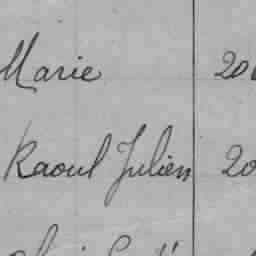 Marie 20
Raoul Julien 20